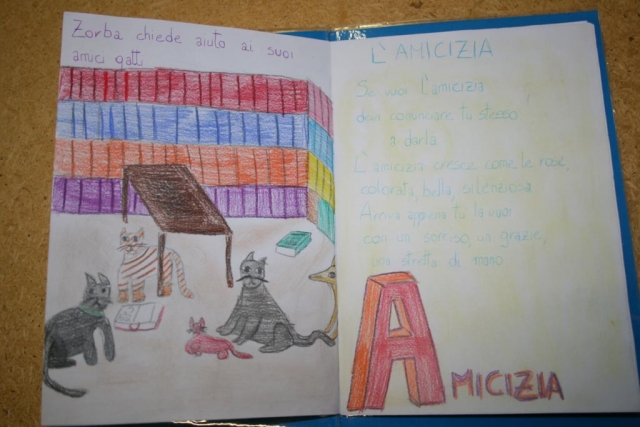 Zorba chiede aiuto ai suoi
amici gatti
L'AMICIZIA
Se vuoi l'amicizia
devi cominciare tu stesso
a darla.
L'amicizia cresce come le rose,
colorata, bella, silenziosa.
Arriva appena tu la vuoi
con un sorriso, un grazie,
una stretta di mano
AMICIZIA